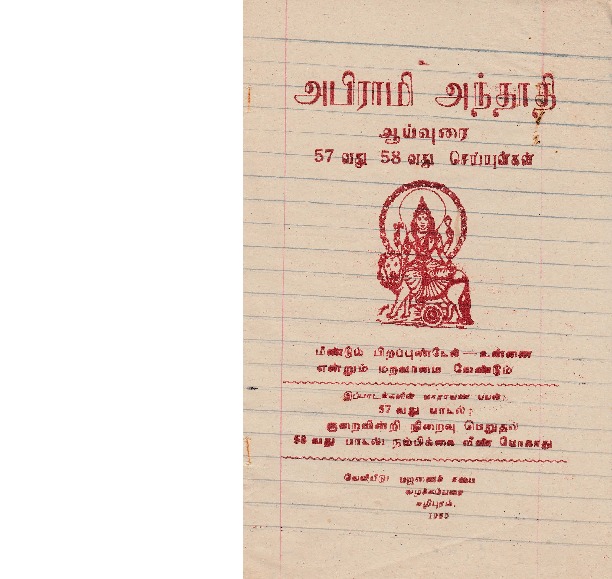 அபிராமி அந்தாதி
ஆய்வுரை
57 வது 58 வது செய்யுள்கள்
மீண்டும் பிறப்புண்டேல் — உன்னை
என்றும் மறவாமை வேண்டும்
இப்பாடல்களின் பாராயண பயன்:
57 வது பாடல்:
குறைவின்றி நிறைவு பெறுதல்
58 வது பாடல்: நம்பிக்கை வீண் போகாது
வெளியீடு: பஜனைச் சபை
சுழிபுரம்.